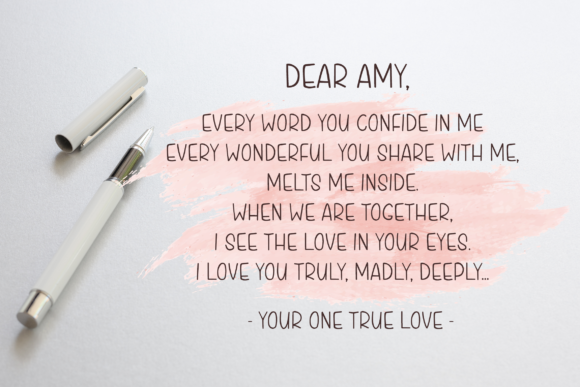 DEAR AMY,
EVERY WORD YOU CONFIDE IN ME
EVERY WONDERFUL YOU SHARE WITH ME,
MELTS ME INSIDE.
WHEN WE ARE TOGETHER,
I SEE THE LOVE IN YOUR EYES.
I LOVE YOU TRULY, MADLY, DEEPLY...
- YOUR ONE TRUE LOVE -